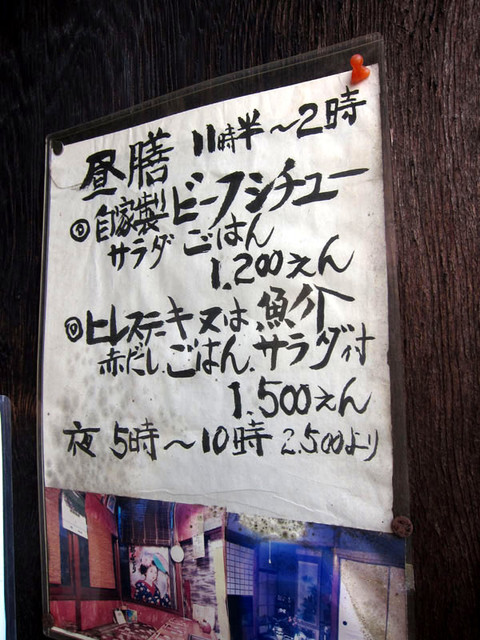 昼膳 11時半～2時
◎自家製ビーフシチュー
サラダ ごはん
1,200えん
◎ヒレステーキ又は、魚介
赤だし、ごはん、サラダ付
1,500えん
夜 5時～10時 2,500より